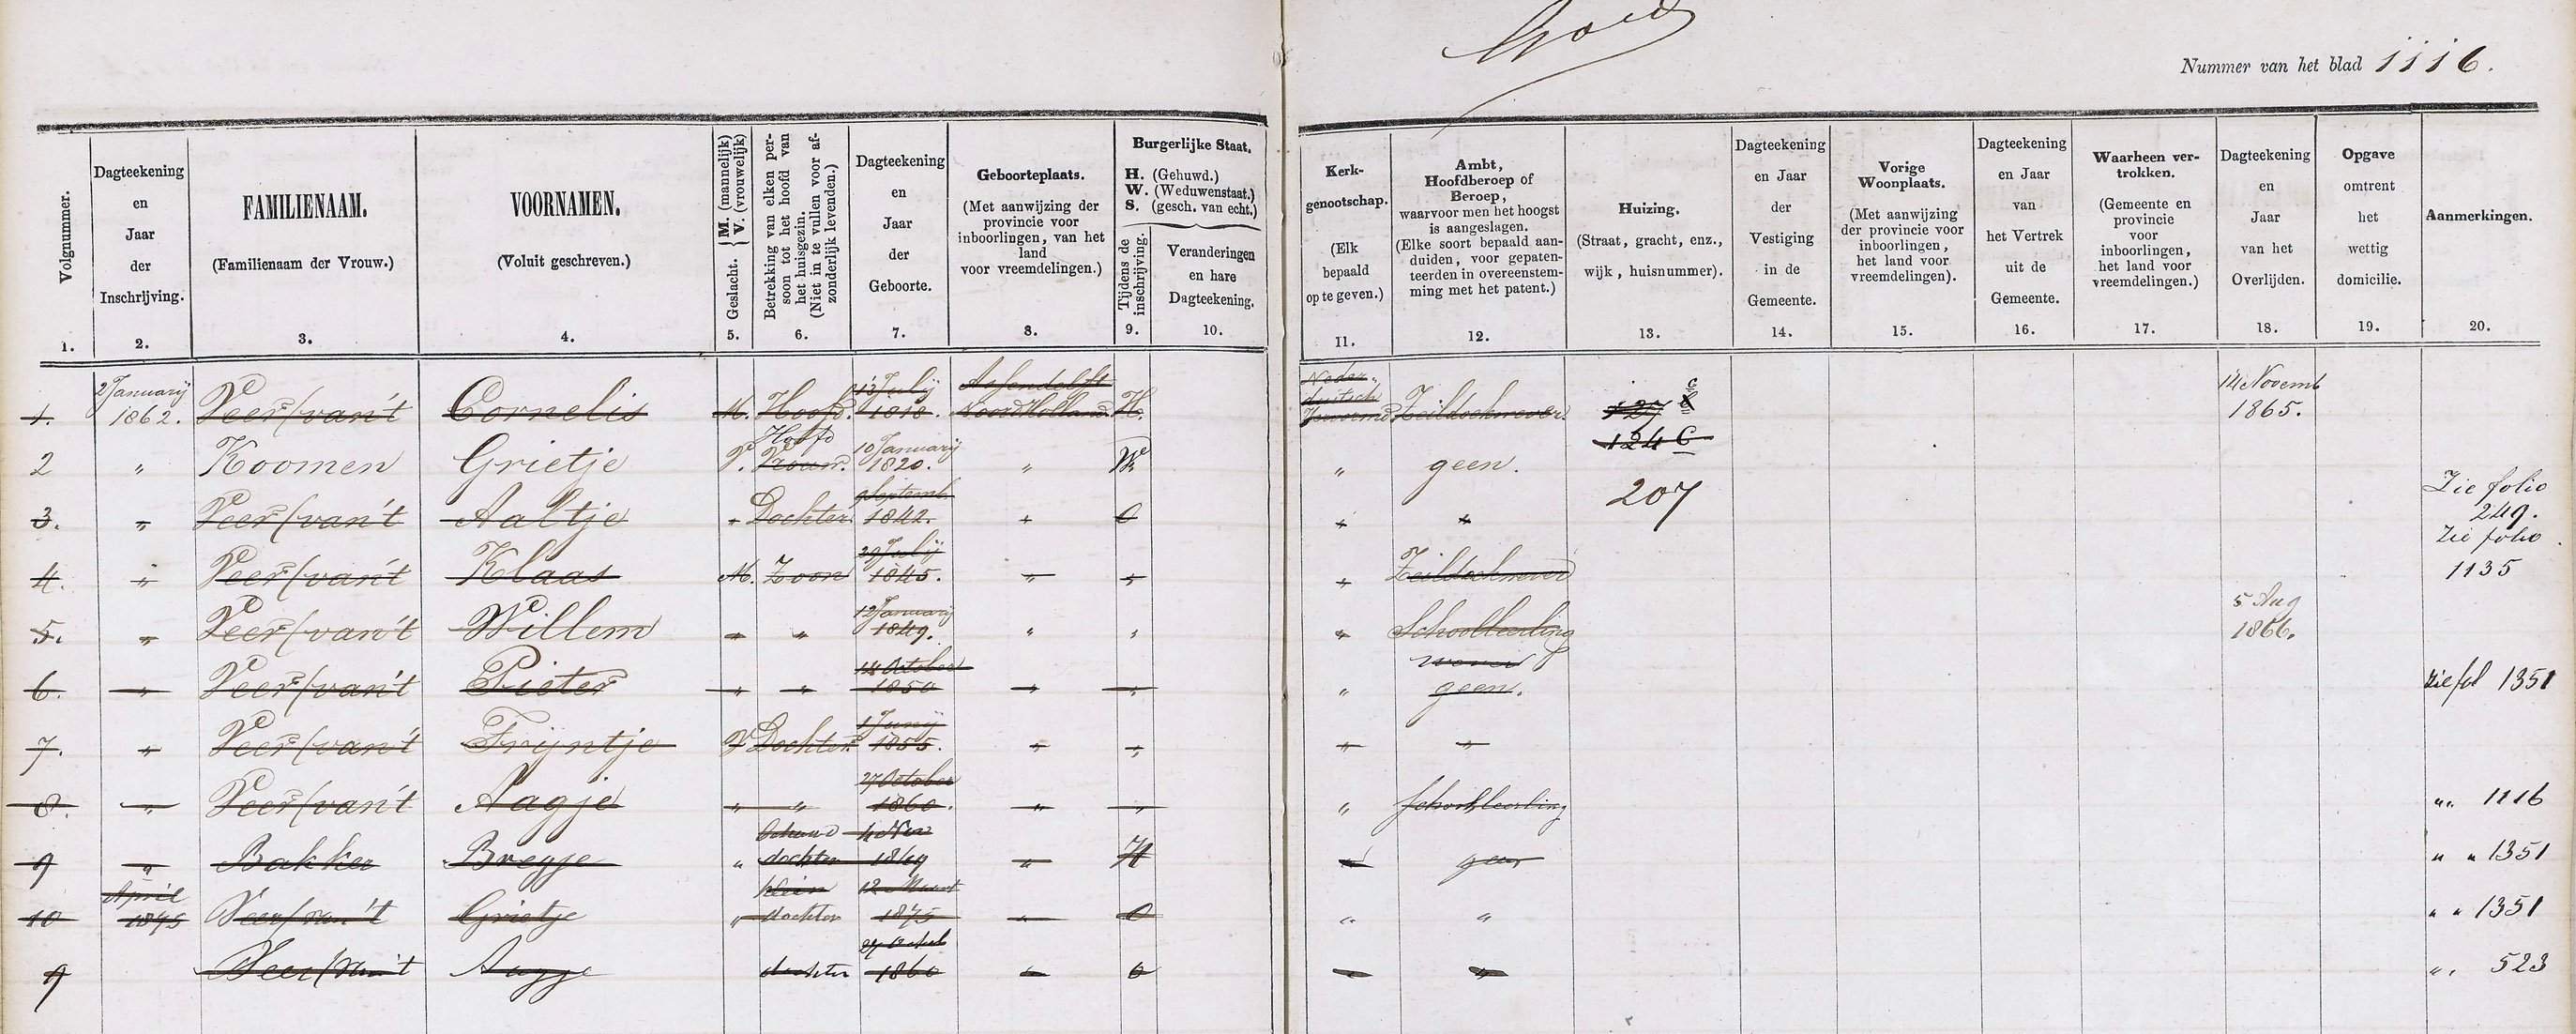 Nummer van het blad 1116.
Volgnummer.
1.
Dagteekening
en
Jaar
der
Inschrijving.
2.
FAMILIENAAM.
(Familienaam der Vrouw.)
3.
VOORNAMEN.
(Voluit geschreven.)
4.
Geslacht. { M. (mannelijk)
V. (vrouwelijk)
5.
Betrekking van elken per-
soon tot het hoofd van
het huisgezin.
(Niet in te vullen voor af-
zonderlijk levenden.)
6.
Dagteekening
en
Jaar
der
Geboorte.
7.
Geboorteplaats.
(Met aanwijzing der
provincie voor
inboorlingen, van het
land
voor vreemdelingen.)
8.
Burgerlijke Staat.
H. (Gehuwd.)
W. (Weduwenstaat.)
S. (gesch. van echt.)
Tijdens de
inschrijving.
9.
Veranderingen
en hare
Dagteekening.
10.
Kerk-
genootschap.
(Elk
bepaald
op te geven.)
11.
Ambt,
Hoofdberoep of
Beroep,
waarvoor men het hoogst
is aangeslagen.
(Elke soort bepaald aan-
duiden, voor gepaten-
teerden in overeenstem-
ming met het patent.)
12.
Huizing.
(Straat, gracht, enz.,
wijk, huisnummer).
13.
Dagteekening
en Jaar
der
Vestiging
in de
Gemeente.
14.
Vorige
Woonplaats.
(Met aanwijzing
der provincie voor
inboorlingen,
het land voor
vreemdelingen).
15.
Dagteekening
en Jaar
van
het Vertrek
uit de
Gemeente.
16.
Waarheen ver-
trokken.
(Gemeente en
provincie
voor
inboorlingen,
het land voor
vreemdelingen.)
17.
Dagteekening
en
Jaar
van het
Overlijden.
18.
Opgave
omtrent
het
wettig
domicilie.
19.
Aanmerkingen.
20.
1. 2 Januarij 1862. Veer (van't Cornelis M. Hoofd. 13 July 1818. Assendelft Noord Holland H. Neder-duitsch Hervormd Zeildoekwever. 127 C 14 Novemb 1865.
124 C
2 " Koomen Grietje V. Vrouw. Hoofd 10 Januarij 1820. " W " geen.
207
3. " Veer (van't Aaltje " Dochter. 9 Septemb 1842. " O " " Zie folio 249.
4. " Veer (van't Klaas M. Zoon 29 Julij 1845. " " " Zeildoekwever Zie folio 1135
5. " Veer (van't Willem " " 12 Januarij 1849. " " " Schoolleerling wever 5 Aug 1866.
6. " Veer (van't Pieter " " 14 October 1850 " " " geen. Zie fol 1351
7. " Veer (van't Trijntje V Dochter 1 Junij 1855. " " " "
8. " Veer (van't Aagje " " 27 October 1860. " " " schoolleerling " " 1116
9 " Bakker Bregje " dochter 4 Nov 1849 " H " geen " " 1351
10 April 1875 Veer (van't Grietje " klein dochter 12 Maart 1875 " O " " " " 1351
9 Veer (van't Aagje dochter 27 Octob 1860 " O " " " 523